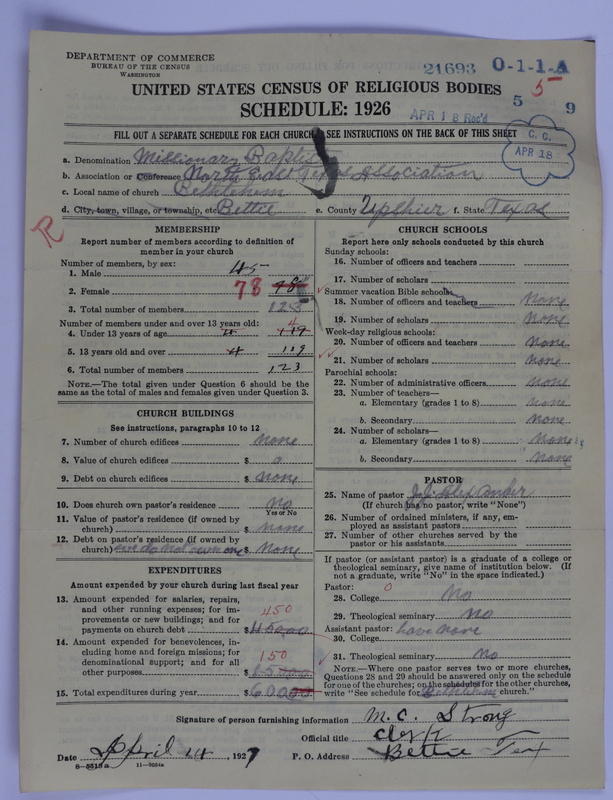 DEPARTMENT OF COMMERCE
BUREAU OF THE CENSUS
WASHINGTON
21693 O-1-1-A
5
UNITED STATES CENSUS OF RELIGIOUS BODIES
SCHEDULE: 1926
APR 18 Rec'd 5 9
FILL OUT A SEPARATE SCHEDULE FOR EACH CHURCH SEE INSTRUCTIONS ON THE BACK OF THIS SHEET
C. C.
APR 18
a. Denomination Missionary Baptist
b. Association or Conference North East Texas Association
c. Local name of church Bethlehem
d. City, town, village, or township, etc. Bettie e. County Upshier f. State Texas
R
MEMBERSHIP
Report number of members according to definition of
member in your church
Number of members, by sex:
1. Male 45
2. Female 78 78
3. Total number of members 123
Number of members under and over 13 years old:
4
4. Under 13 years of age 4 119
5. 13 years old and over 4 119
6. Total number of members 123
NOTE.—The total given under Question 6 should be the
same as the total of males and females given under Question 3.
CHURCH BUILDINGS
See instructions, paragraphs 10 to 12
7. Number of church edifices none
8. Value of church edifices $ 0
9. Debt on church edifices $ none
10. Does church own pastor's residence No
Yes or No
11. Value of pastor's residence (if owned by
church) $ none
12. Debt on pastor's residence (if owned by
church) we do not own one $ None
EXPENDITURES
Amount expended by your church during last fiscal year
13. Amount expended for salaries, repairs,
and other running expenses; for im-
provements or new buildings; and for
payments on church debt 450 $ 45000
14. Amount expended for benevolences, in-
cluding home and foreign missions; for
denominational support; and for all
other purposes 150 $ 15000
15. Total expenditures during year $ 60000
CHURCH SCHOOLS
Report here only schools conducted by this church
Sunday schools:
16. Number of officers and teachers
17. Number of scholars
Summer vacation Bible schools:
18. Number of officers and teachers None
19. Number of scholars None
Week-day religious schools:
20. Number of officers and teachers None
21. Number of scholars none
Parochial schools:
22. Number of administrative officers none
23. Number of teachers—
a. Elementary (grades 1 to 8) none
b. Secondary none
24. Number of scholars—
a. Elementary (grades 1 to 8) None
b. Secondary None
PASTOR
25. Name of pastor
(If church has no pastor, write "None")
26. Number of ordained ministers, if any, em-
ployed as assistant pastors
27. Number of other churches served by the
pastor or his assistants
If pastor (or assistant pastor) is a graduate of a college or
theological seminary, give name of institution below. (If
not a graduate, write "No" in the space indicated.)
Pastor: 0
28. College No
29. Theological seminary No
Assistant pastor: have none
30. College
31. Theological seminary No
NOTE.—Where one pastor serves two or more churches,
Questions 28 and 29 should be answered only on the schedule
for one of the churches; on the schedules for the other churches,
write "See schedule for Bethlehem church."
Signature of person furnishing information M. C. Strong
Official title clerk
Date April 14, 1927 P. O. Address Bettie Tex
8-5513a 11-9034a